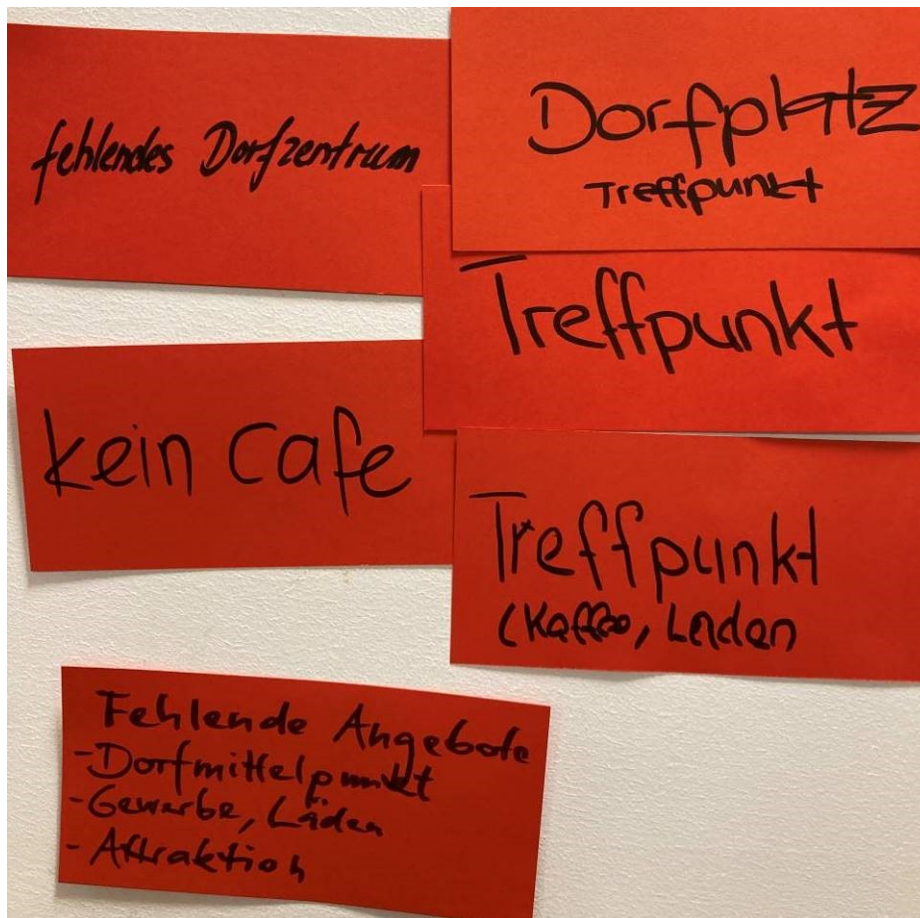 fehlendes Dorfzentrum
Dorfplatz
Treffpunkt
Treffpunkt
kein Cafe
Treffpunkt
(Kaffee, Laden
Fehlende Angebote
- Dorfmittelpunkt
- Gewerbe, Läden
- Attraktion